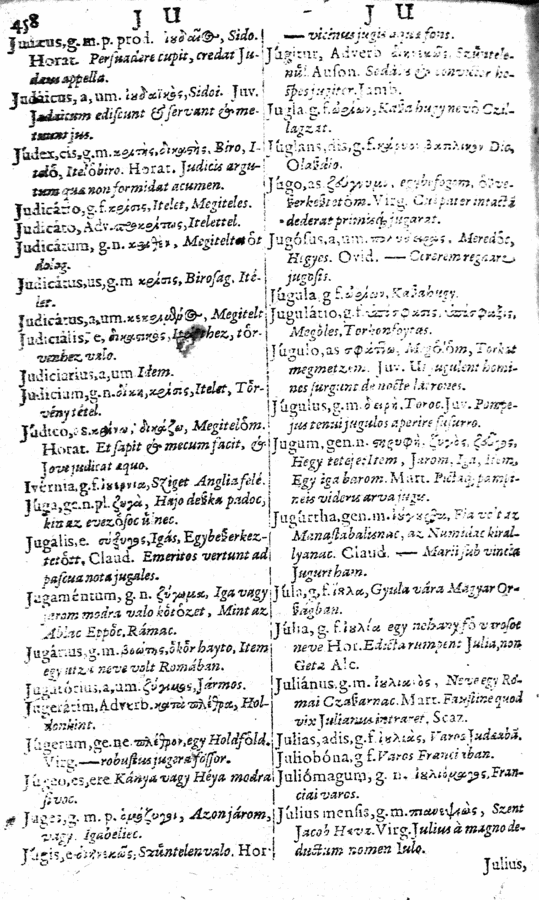 458 J U
Judæus, g. m. p. prod. ἰουδαῖος, Sido.
Horat. Persuadere cupit, credat Ju-
dæus appella.
Judáicus, a, um. ἰουδαϊκὸς, Sidoi. Juv.
Judaicum ediscunt & servant & me-
tuunt jus.
Júdex, cis, g. m. κριτὴς, δικαστὴς, Biro, I-
télő, Itelőbiro. Horat. Judicis argu-
tum quæ non formidat acumen.
Judicátio, g. f. κρίσις, Itelet, Megiteles.
Judicáto, Adv. Itelettel.
Judicátum, g. n. Megiteltetőt
dolog.
Judicátus, us, g. m κρίσις, Birosag. Ité-
let.
Judicátus, a, um. Megitelt
Judiciális, e, δικαστικὸς, tőr-
venhez valo.
Judiciarius, a, um Idem.
Judicium, g. n. δίκη, κρίσις, Itelet, Tőr-
vény tétel.
Júdico, as. κρίνω, δικάζω, Megitelőm.
Horat. Et sapit & mecum facit, &
Jove judicat æquo.
Ivérnia, g. f. ἰουερνία, Sziget Anglia felé.
Júga, gæ. n. pl. ζυγὰ, Hajo deßka padoc,
kin az evezősoc ülnec.
Jugális, e. σύζυγος, Igás, Egybeßerkez-
tetőtt, Claud. Emeritos vertunt ad
pascua nota jugales.
Jugaméntum, g. n. ζύγωμα, Iga vagy
jarom modra valo kőtőzet, Mint az
Ablac Eppőc, Rámac.
Jugárius, g. m. βοώτης, őkőr hayto, Item
egy utza neve volt Romában.
Jugatórius, a, um. Jármos.
Jugerátim, Adverb. Hol-
donkint.
Júgerum, ge. ne. πλέθρον, egy Holdfőld.
Virg. — robustus jugera fossor.
Júgeo, es, ere Kánya vagy Héya modra
sivoc.
Juges, g. m. p. ὁμόζυγοι, Azon járom,
vagy Igabeliec.
Júgis, e Szüntelen valo. Hor
J U
— vicinus jugis aquæ fons.
Júgiter, Adverb Szüntele-
nül. Auson. Sedulus & convictor ho-
spes jugiter. Iamb.
Jugla. g. f. Kaßa hugy nevő Czil-
lagzat.
Júglans, dis, g. f. κάρυον Dio,
Olaßdio.
Júgo, as. ζεύγνυμι, egybefogom, őßve-
ßerkeßtetőm. Virg. Cui pater intactã
dederat primisq; jugarat.
Jugósus, a, um. Meredőc,
Hegyes. Ovid. — Cererem regnare
jugosis.
Júgula g. f. Kaßahugy.
Jugulátio, g. f.
Megőles, Torkonfoytas.
Júgulo, as σφάττω, Megőlőm, Torkat
megmetzem. Juv. Ut jugulent homi-
nes surgunt de nocte latrones.
Júgulus, g. m. δειρὴ, Toroc. Juv. Pompe-
jus tenui jugulos aperire susurro.
Jugum, gen. n. ζυγὸς,
Hegy teteje: Item, Jarom, Iga, Item,
Egy iga barom. Mart. Pictaq; pampi-
neis videns arva jugis.
Jugúrtha, gen. m. Fia volt az
Manastabalisnac, az Numidac kiral-
lyanac. Claud. — Marii sub vincla
Jugurtham.
Júla, g. f. ἰύλα, Gyula vára Magyar Or-
ßagban.
Júlia, g. f. ἰουλία egy nehany fő varosoc
neve Hor. Edicta rumpent Julia, non
Getæ Alc.
Juliánus, g. m. ἰουλιανὸς, Neve egy Ro-
mai Czaßarnac. Mart. Faustine quod
vix Julianus intraret. Scaz.
Julias, adis, g. f. ἰουλιὰς, Varos Judæába.
Juliobóna, g f. Varos Franciaban.
Juliómagum, g. n. ἰουλιόμαγος, Fran-
ciai varos.
Július mensis, g. m. Szent
Jacob Hava. Virg. Julius à magno de-
ductum nomen Iulo.
Julius,